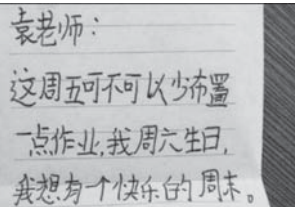 袁老师：
这周五可不可以少布置
一点作业,我周六生日,
我想有个快乐的周末。